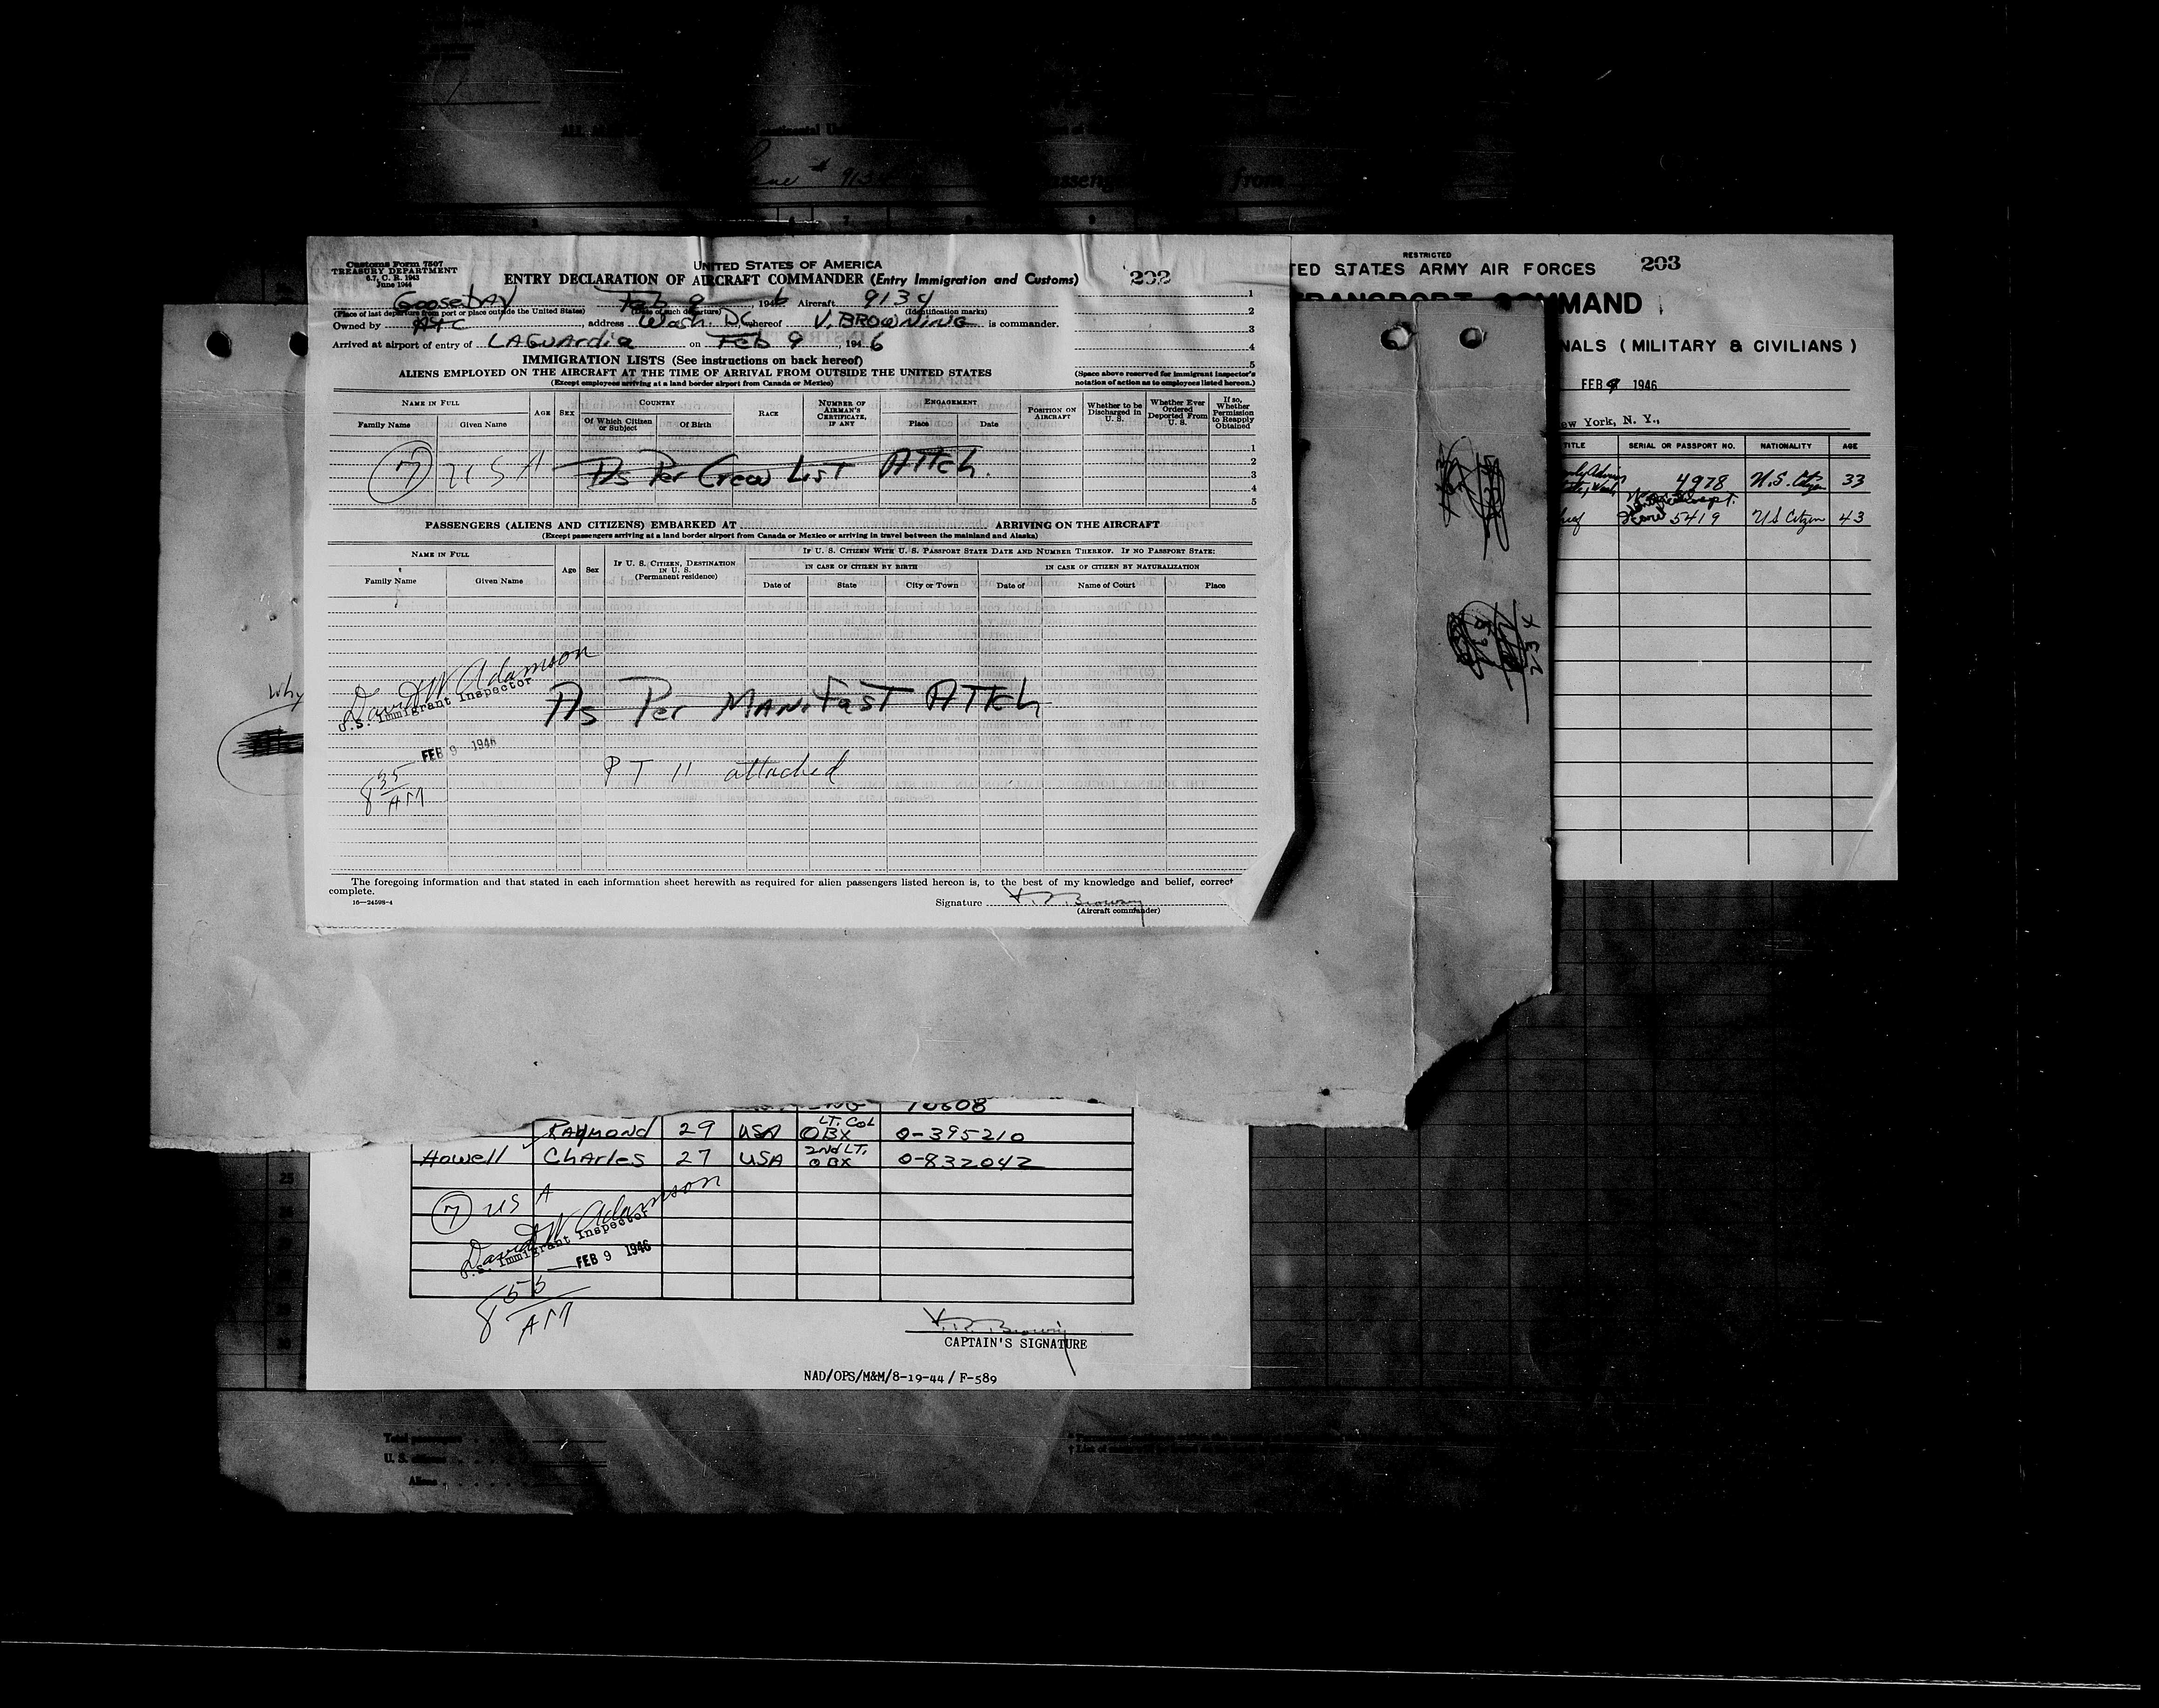 Customs Form 7507
TREASURY DEPARTMENT
6.7, C. R. 1943
June 1944
UNITED STATES OF AMERICA
ENTRY DECLARATION OF AIRCRAFT COMMANDER (Entry Immigration and Customs)
202
GooseBAY Feb 9 1946 Aircraft 9134
(Place of last departure from port or place outside the United States) (Date of such departure) (Identification marks)
Owned by address Wash. DC, whereof V. BROWNING is commander.
Arrived at airport of entry of LAGUArdia on Feb 9, 1946
1
2
3
4
5
(Space above reserved for immigrant inspector's notation of action as to employees listed hereon.)
IMMIGRATION LISTS (See instructions on back hereof)
ALIENS EMPLOYED ON THE AIRCRAFT AT THE TIME OF ARRIVAL FROM OUTSIDE THE UNITED STATES
(Except employees arriving at a land border airport from Canada or Mexico)
NAME IN FULL
Family Name Given Name
AGE SEX
COUNTRY
Of Which Citizen or Subject Of Birth
RACE
NUMBER OF AIRMAN'S CERTIFICATE, IF ANY
ENGAGEMENT
Place Date
POSITION ON AIRCRAFT
Whether to be Discharged in U. S.
Whether Ever Ordered Deported From U. S.
If so, Whether Permission to Reapply Obtained
1
2
3
4
5
7 USA As Per Crew LIST ATTch.
PASSENGERS (ALIENS AND CITIZENS) EMBARKED AT ARRIVING ON THE AIRCRAFT
(Except passengers arriving at a land border airport from Canada or Mexico or arriving in travel between the mainland and Alaska)
NAME IN FULL
Family Name Given Name
Age Sex
IF U. S. CITIZEN, DESTINATION IN U. S.
(Permanent residence)
IF U. S. CITIZEN WITH U. S. PASSPORT STATE DATE AND NUMBER THEREOF. IF NO PASSPORT STATE:
IN CASE OF CITIZEN BY BIRTH IN CASE OF CITIZEN BY NATURALIZATION
Date of State City or Town Date of Name of Court Place
David W Adamson
U.S. Immigrant Inspector
As Per MANifasT ATTch
FEB 9 1946
PT 11 attached
8 35 AM
The foregoing information and that stated in each information sheet herewith as required for alien passengers listed hereon is, to the best of my knowledge and belief, correct
complete.
16—24598-4
Signature V. R. Browning
(Aircraft commander)
RESTRICTED
TED STATES ARMY AIR FORCES 203
TRANSPORT COMMAND
NALS (MILITARY & CIVILIANS)
FEB 9 1946
ew York, N. Y.,
TITLE SERIAL OR PASSPORT NO. NATIONALITY AGE
4978 U.S. Citizen 33
5419 US Citizen 43
234
Why
10608
RAYMOND 29 USA LT. COL OBX 0-395210
Howell CHArles 27 USA 2Nd LT. OBX 0-832042
25
7 USA
David W Adamson
U.S. Immigrant Inspector
FEB 9 1946
8 55 AM
V. R. Browning
CAPTAIN'S SIGNATURE
NAD/OPS/M&M/8-19-44/ F-589
Total passengers
U. S. citizens
Aliens